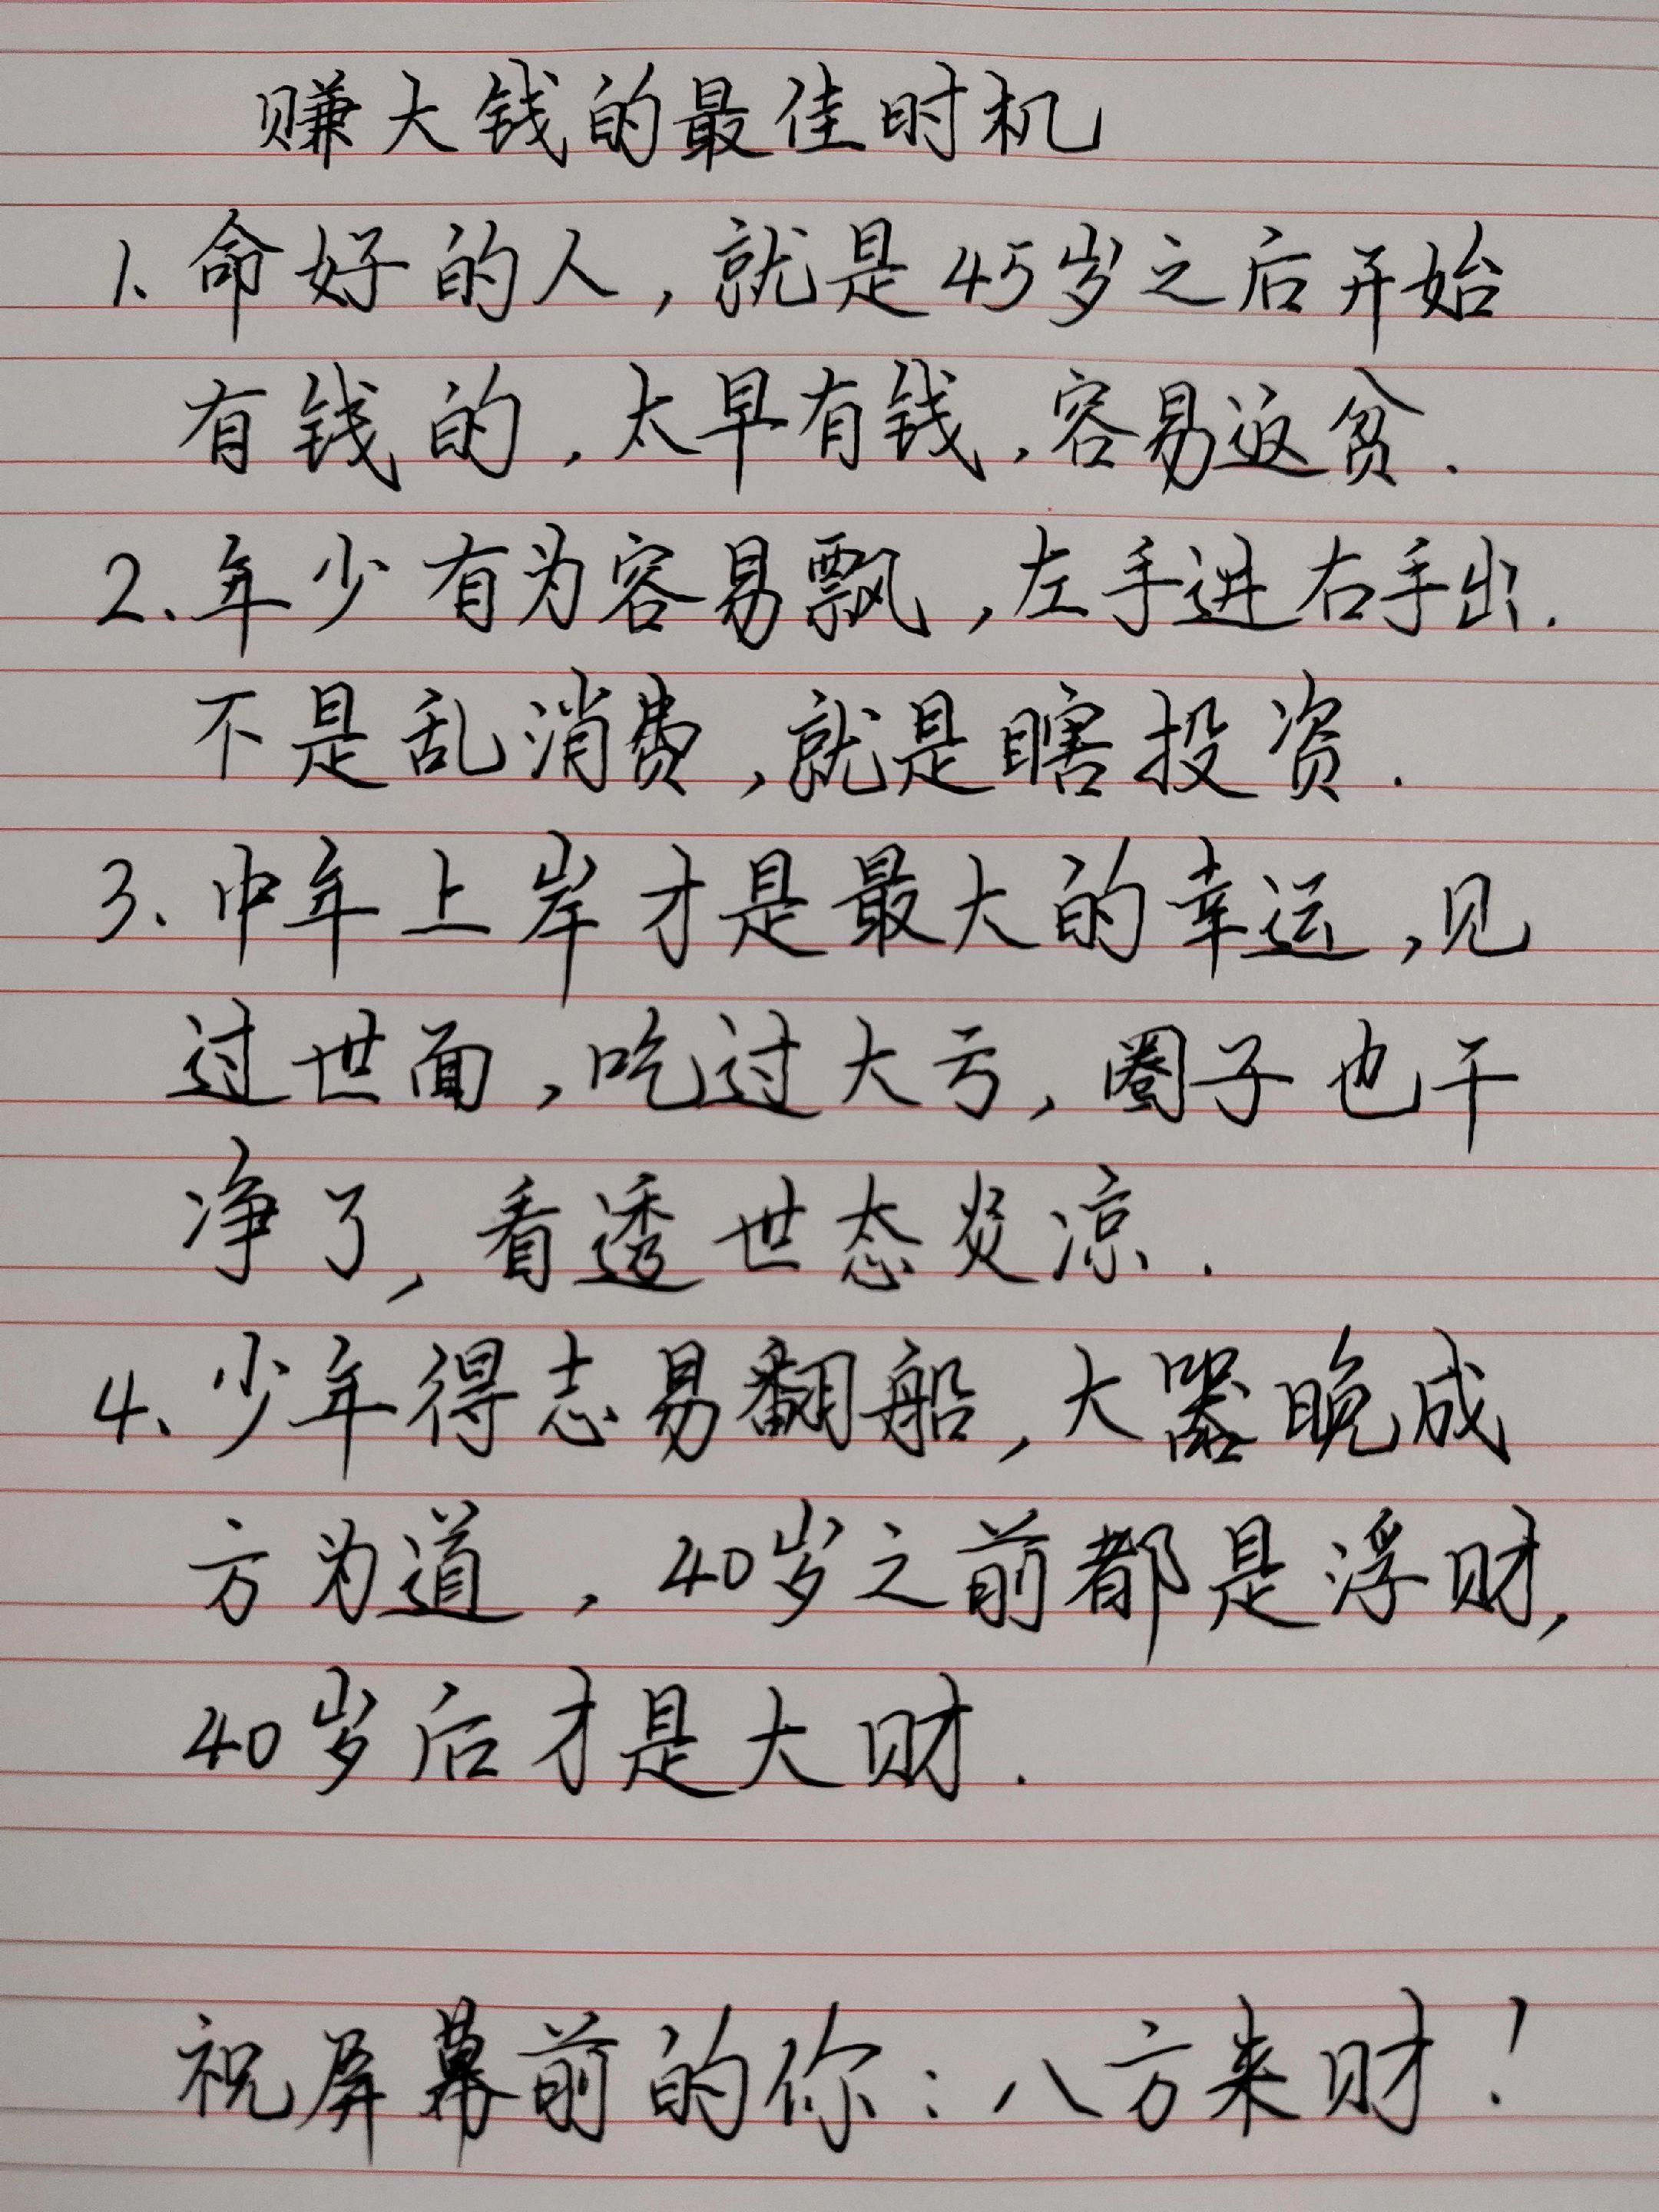 赚大钱的最佳时机
1、命好的人，就是45岁之后开始
有钱的，太早有钱，容易返贫.
2、年少有为容易飘，左手进右手出.
不是乱消费，就是瞎投资.
3、中年上岸才是最大的幸运，见
过世面，吃过大亏，圈子也干
净了，看透世态炎凉.
4、少年得志易翻船，大器晚成
方为道，40岁之前都是浮财，
40岁后才是大财.
祝屏幕前的你：八方来财！